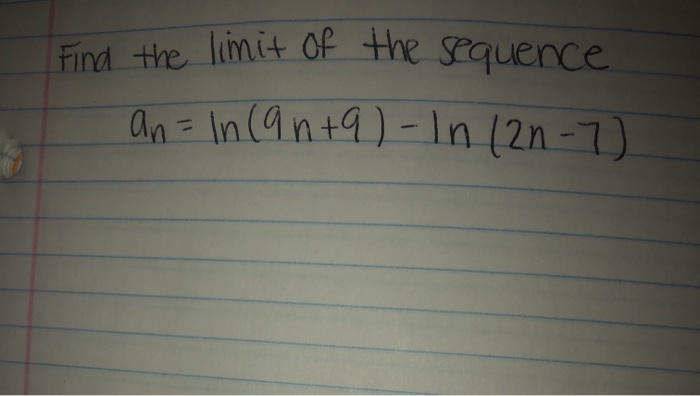 Find the limit of the sequence
an = ln(9n+9) - ln (2n-7)